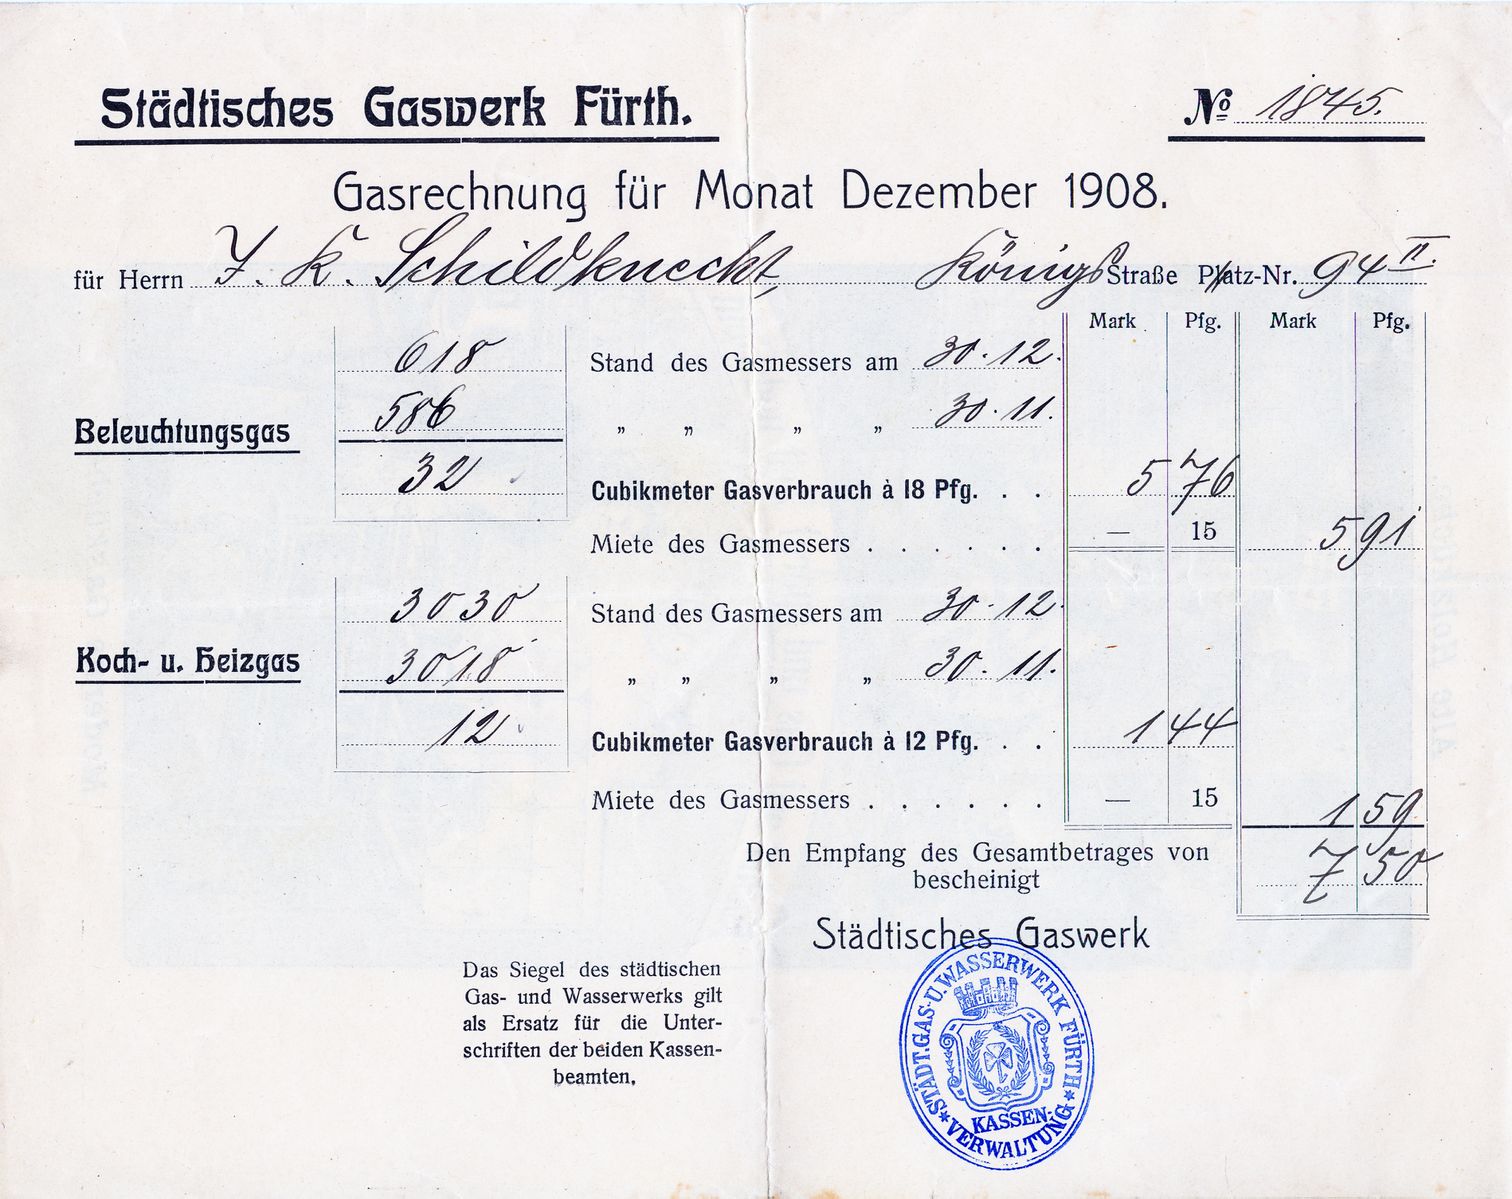 Städtisches Gaswerk Fürth. № 1845.
Gasrechnung für Monat Dezember 1908.
für Herrn J. K. Schildknecht, Königs Straße Platz-Nr. 94 II.
Mark Pfg. Mark Pfg.
618 Stand des Gasmessers am 30.12.
586 „ „ „ „ 30.11.
Beleuchtungsgas
32 Cubikmeter Gasverbrauch à 18 Pfg. . . 5 76
Miete des Gasmessers . . . . . . — 15 5 91
3030 Stand des Gasmessers am 30.12.
3018 „ „ „ „ 30.11.
Koch- u. Heizgas
12 Cubikmeter Gasverbrauch à 12 Pfg. . . 1 44
Miete des Gasmessers . . . . . . — 15 1 59
Den Empfang des Gesamtbetrages von 7 50
bescheinigt
Städtisches Gaswerk
Das Siegel des städtischen
Gas- und Wasserwerks gilt
als Ersatz für die Unter-
schriften der beiden Kassen-
beamten.
STÄDT. GAS- U. WASSERWERK FÜRTH
* KASSEN- *
VERWALTUNG